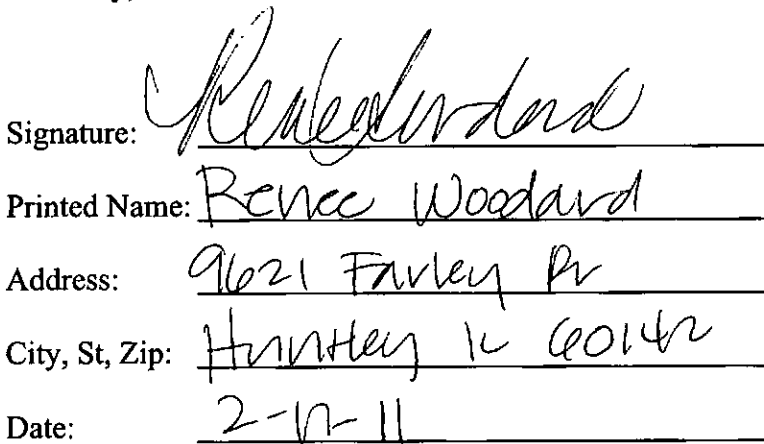 Signature: Renee Woodard
Printed Name: Renee Woodard
Address: 9621 Farley Dr
City, St, Zip: Huntley IL 60142
Date: 2-12-11